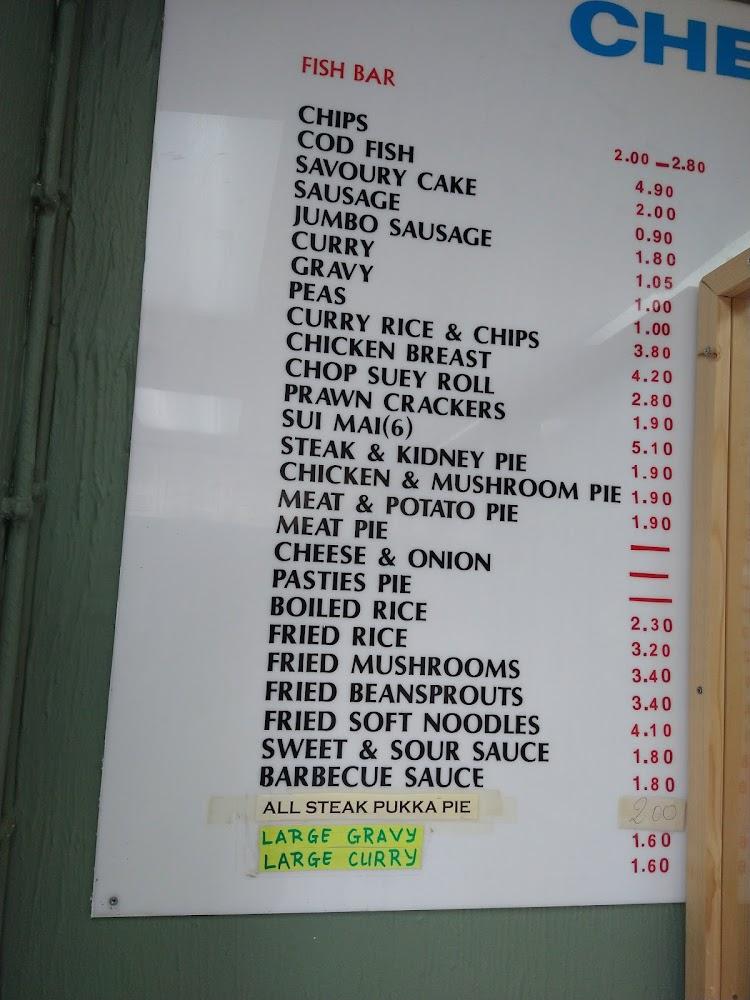 CHE
FISH BAR
CHIPS 2.00 – 2.80
COD FISH 4.90
SAVOURY CAKE 2.00
SAUSAGE 0.90
JUMBO SAUSAGE 1.80
CURRY 1.05
GRAVY 1.00
PEAS 1.00
CURRY RICE & CHIPS 3.80
CHICKEN BREAST 4.20
CHOP SUEY ROLL 2.80
PRAWN CRACKERS 1.90
SUI MAI(6) 5.10
STEAK & KIDNEY PIE 1.90
CHICKEN & MUSHROOM PIE 1.90
MEAT & POTATO PIE 1.90
MEAT PIE —
CHEESE & ONION —
PASTIES PIE —
BOILED RICE 2.30
FRIED RICE 3.20
FRIED MUSHROOMS 3.40
FRIED BEANSPROUTS 3.40
FRIED SOFT NOODLES 4.10
SWEET & SOUR SAUCE 1.80
BARBECUE SAUCE 1.80
ALL STEAK PUKKA PIE 2.00
LARGE GRAVY 1.60
LARGE CURRY 1.60